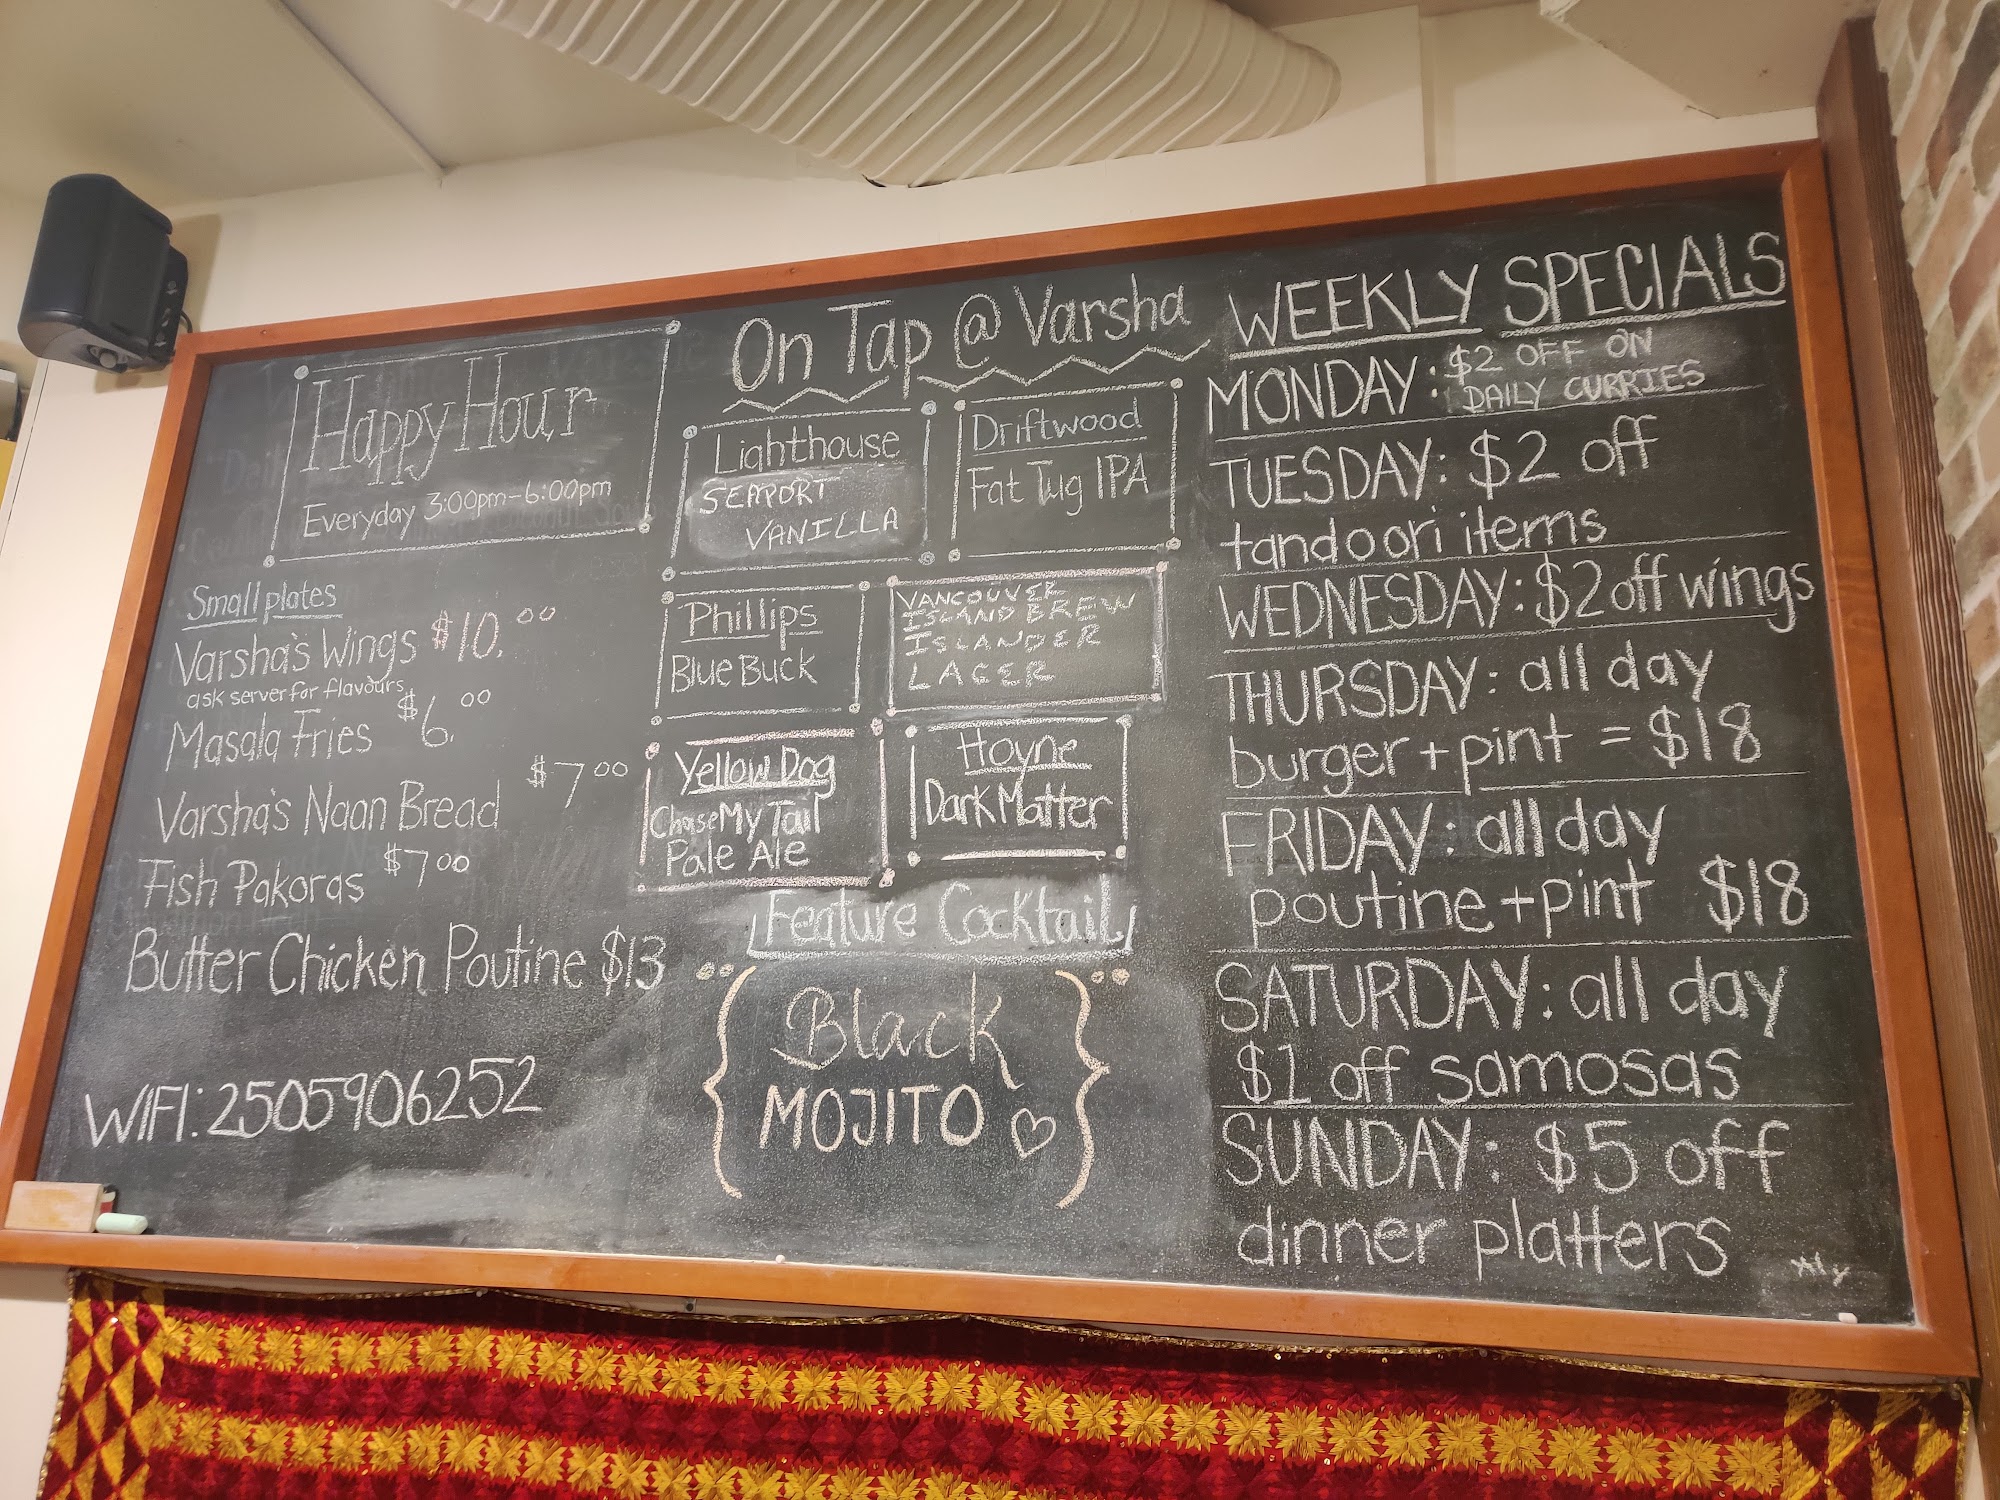 Happy Hour
Everyday 3:00pm-6:00pm
Small plates
Varsha's Wings $10.00
ask server for flavours
Masala Fries $6.00
Varsha's Naan Bread $7.00
Fish Pakoras $7.00
Butter Chicken Poutine $13
WIFI: 2505906252
On Tap @ Varsha
Lighthouse
SEAPORT
VANILLA
Driftwood
Fat Tug IPA
Phillips
Blue Buck
VANCOUVER
ISLAND BREW
ISLANDER
LAGER
Yellow Dog
Chase My Tail
Pale Ale
Hoyne
Dark Matter
Feature Cocktail
Black
MOJITO
WEEKLY SPECIALS
MONDAY: $2 OFF ON
DAILY CURRIES
TUESDAY: $2 off
tandoori items
WEDNESDAY: $2 off wings
THURSDAY: all day
burger + pint = $18
FRIDAY: all day
poutine + pint $18
SATURDAY: all day
$1 off samosas
SUNDAY: $5 off
dinner platters